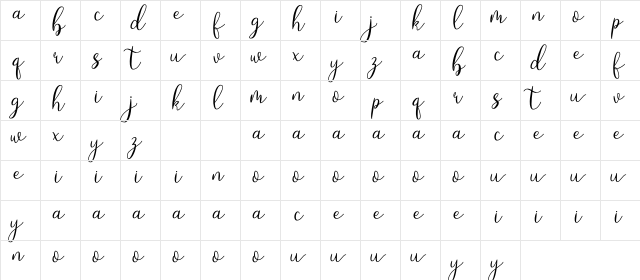 a b c d e f g h i j k l m n o p
q r s t u v w x y z a b c d e f
g h i j k l m n o p q r s t u v
w x y z a a a a a a c e e e
e i i i i n o o o o o o u u u u
y a a a a a a c e e e e i i i i
n o o o o o o u u u u y y